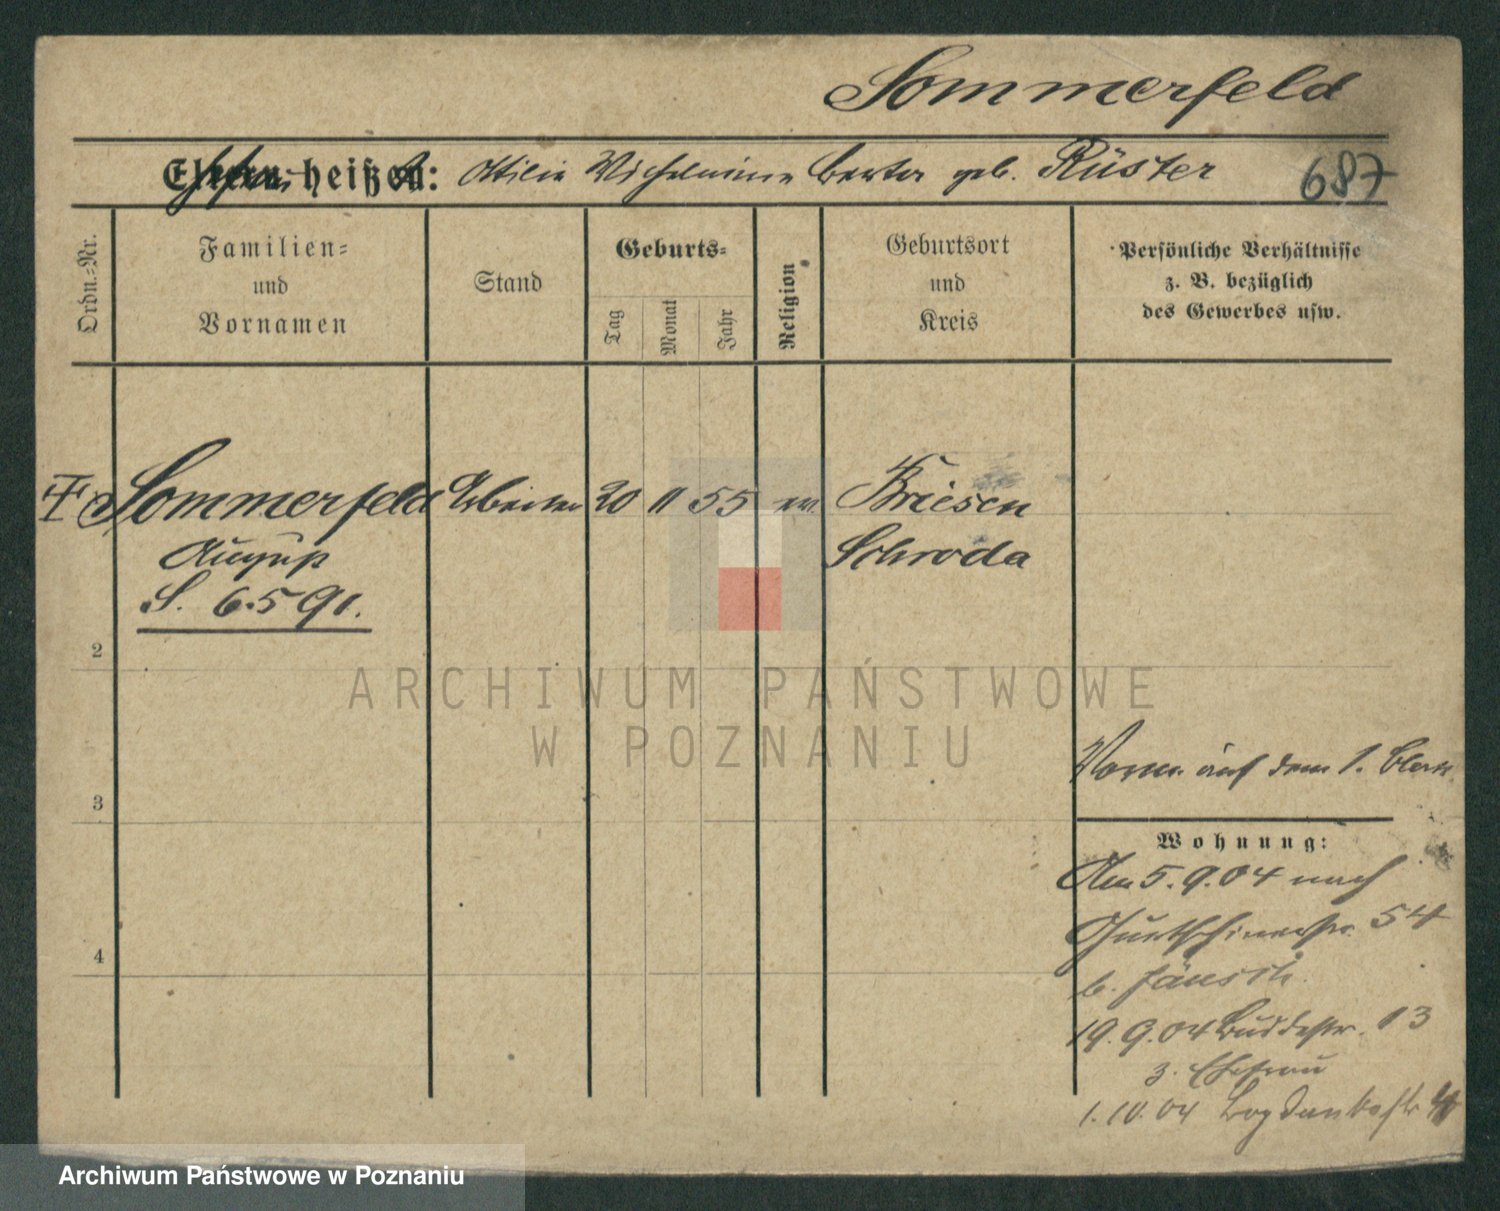 Sommerfeld
Eltern heißen: Ottilie Wilhelmine Berta geb. Rüster 687
Ehefrau
Ordn.=Nr.
Familien=
und
Vornamen
Stand
Geburts=
Tag
Monat
Jahr
Religion
Geburtsort
und
Kreis
Persönliche Verhältnisse
z. B. bezüglich
des Gewerbes usw.
Sommerfeld Arbeiter 20 11 55 ev. Briesen
August Schroda
S. 6.5 91.
2
3
4
ARCHIWUM PAŃSTWOWE
W POZNANIU
Verm. auf dem 1. Blatt
Wohnung:
Am 5.9.04 nach
54
b. Jänsch.
19.9.04 Buddestr. 13
z. Ehefrau
1.10.04 Bogdankastr
Archiwum Państwowe w Poznaniu